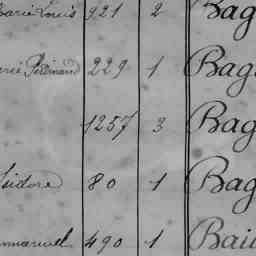 Marie Louis 921 2 Bag
Ferdinand 229 1 Bag
1257 3 Bag
Isidore 80 1 Bag
Emmanuel 490 1 Bai